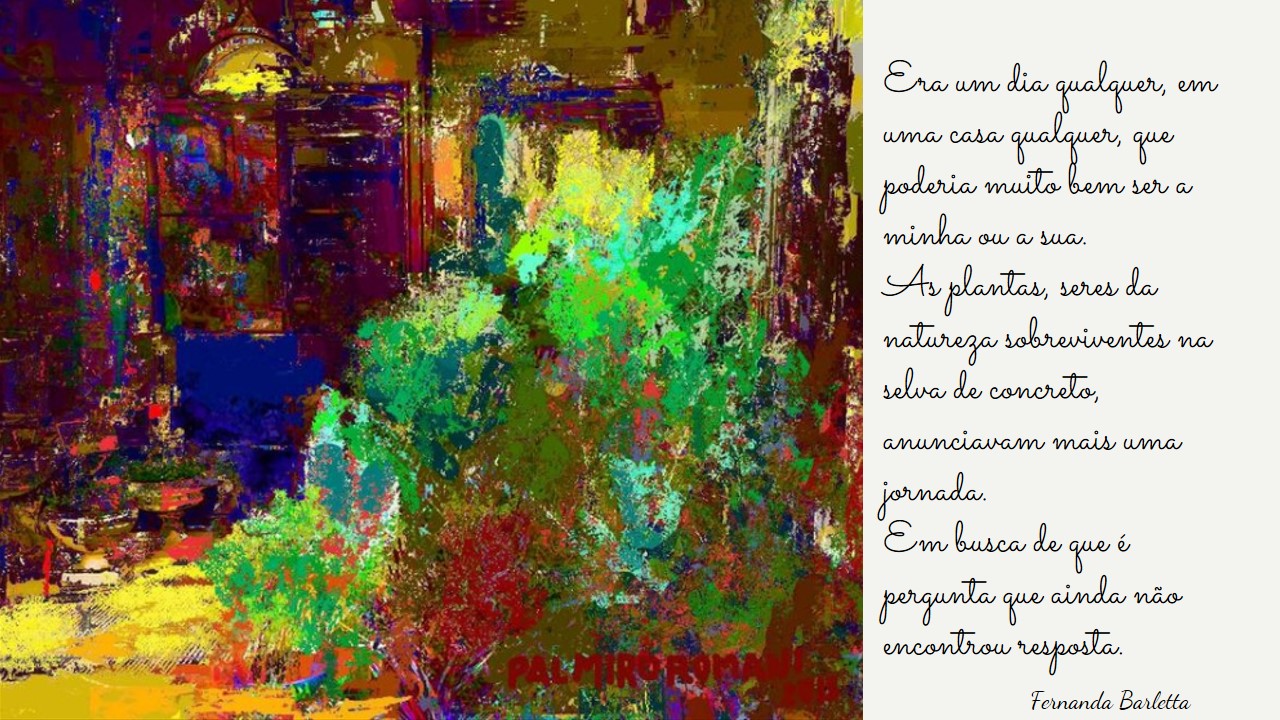 Era um dia qualquer, em
uma casa qualquer, que
poderia muito bem ser a
minha ou a sua.
As plantas, seres da
natureza sobreviventes na
selva de concreto,
anunciavam mais uma
jornada.
Em busca de que é
pergunta que ainda não
encontrou resposta.
Fernanda Barletta
PALMIRO ROMANI
2015